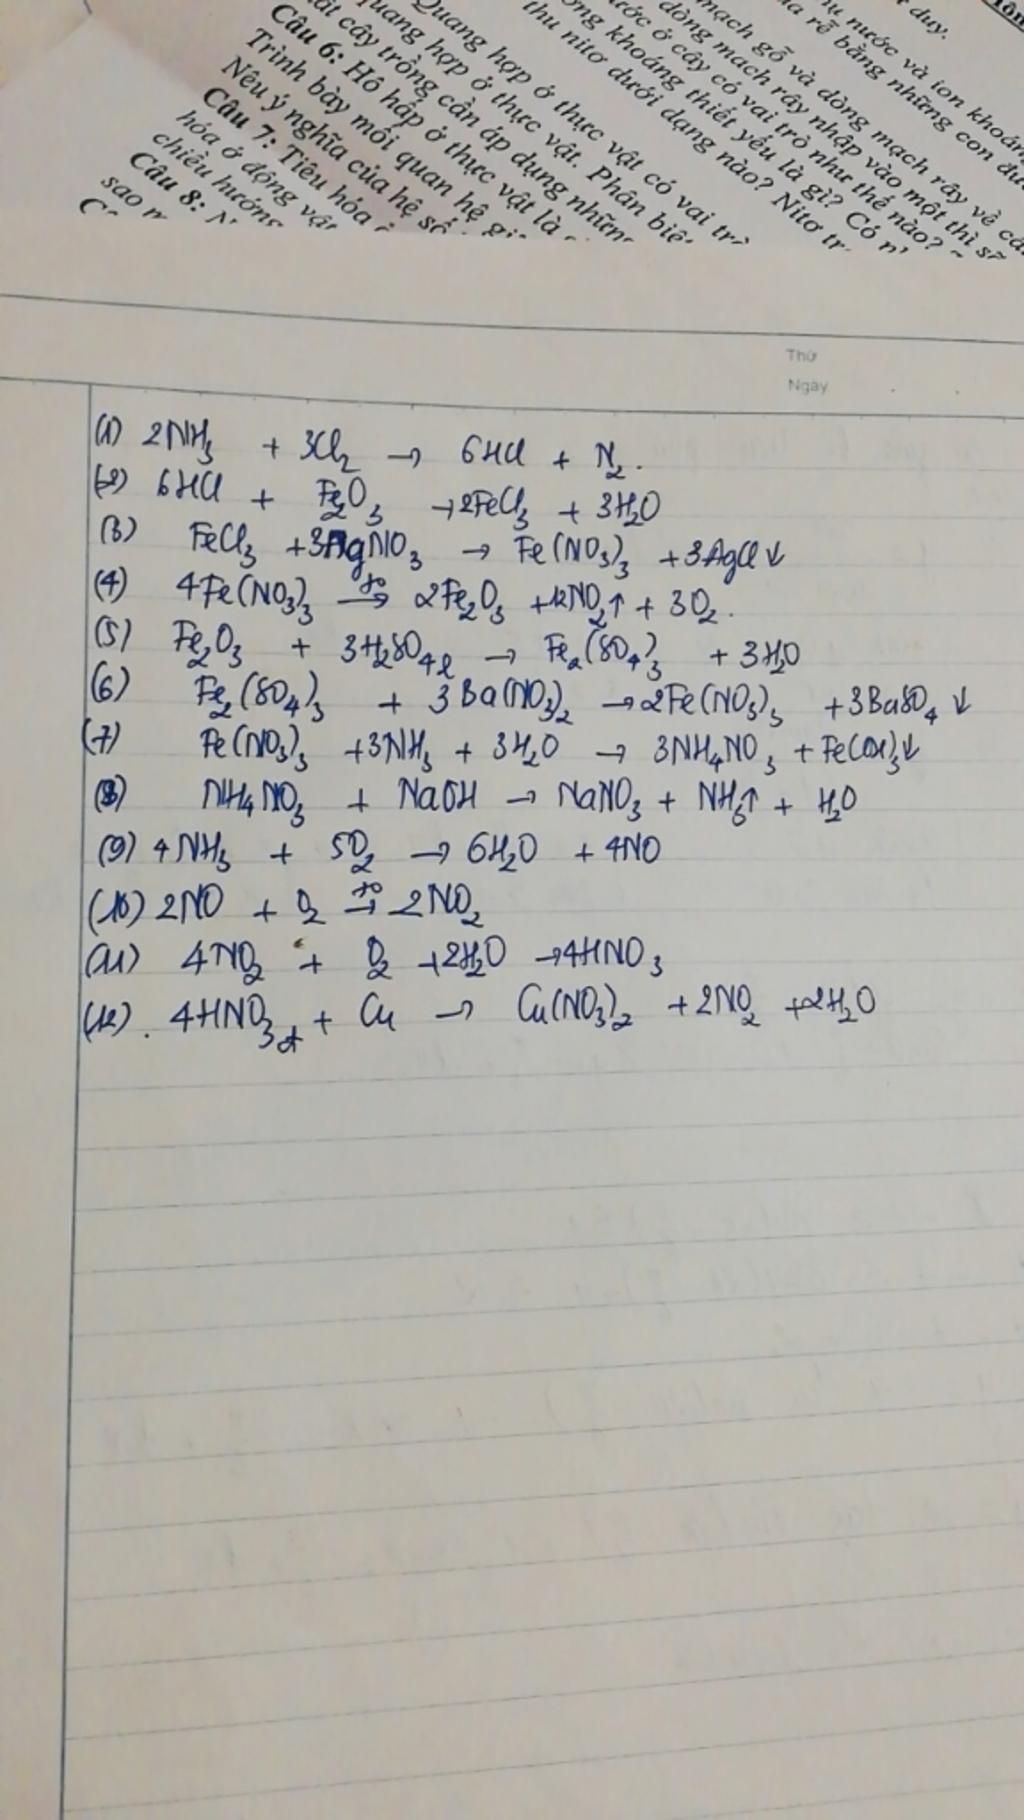 duy.
mạch gỗ và dòng mạch rây về
dòng mạch rây nhập vào một thì
ở cây có vai trò như thế nào?
khoáng thiết yếu là gì? Có
thu nitơ dưới dạng nào? Nitơ
Quang hợp ở thực vật có vai
quang hợp ở thực vật. Phân
cây trồng cần áp dụng những
Câu 6: Hô hấp ở thực vật là
Trình bày mối quan hệ
Nêu ý nghĩa của hệ số
Câu 7: Tiêu hóa
hóa ở động vật
chiều hướng
Câu 8:
sao
Thứ
Ngày
(1) 2NH₃ + 3Cl₂ → 6HCl + N₂.
(2) 6HCl + Fe₂O₃ → 2FeCl₃ + 3H₂O
(3) FeCl₃ + 3AgNO₃ → Fe(NO₃)₃ + 3AgCl↓
(4) 4Fe(NO₃)₃ →(t°) 2Fe₂O₃ + 12NO₂↑ + 3O₂.
(5) Fe₂O₃ + 3H₂SO₄ l → Fe₂(SO₄)₃ + 3H₂O
(6) Fe₂(SO₄)₃ + 3Ba(NO₃)₂ → 2Fe(NO₃)₃ + 3BaSO₄↓
(7) Fe(NO₃)₃ + 3NH₃ + 3H₂O → 3NH₄NO₃ + Fe(OH)₃↓
(8) NH₄NO₃ + NaOH → NaNO₃ + NH₃↑ + H₂O
(9) 4NH₃ + 5O₂ → 6H₂O + 4NO
(10) 2NO + O₂ →(t°) 2NO₂
(11) 4NO₂ + O₂ + 2H₂O → 4HNO₃
(12). 4HNO₃ đ + Cu → Cu(NO₃)₂ + 2NO₂ + 2H₂O